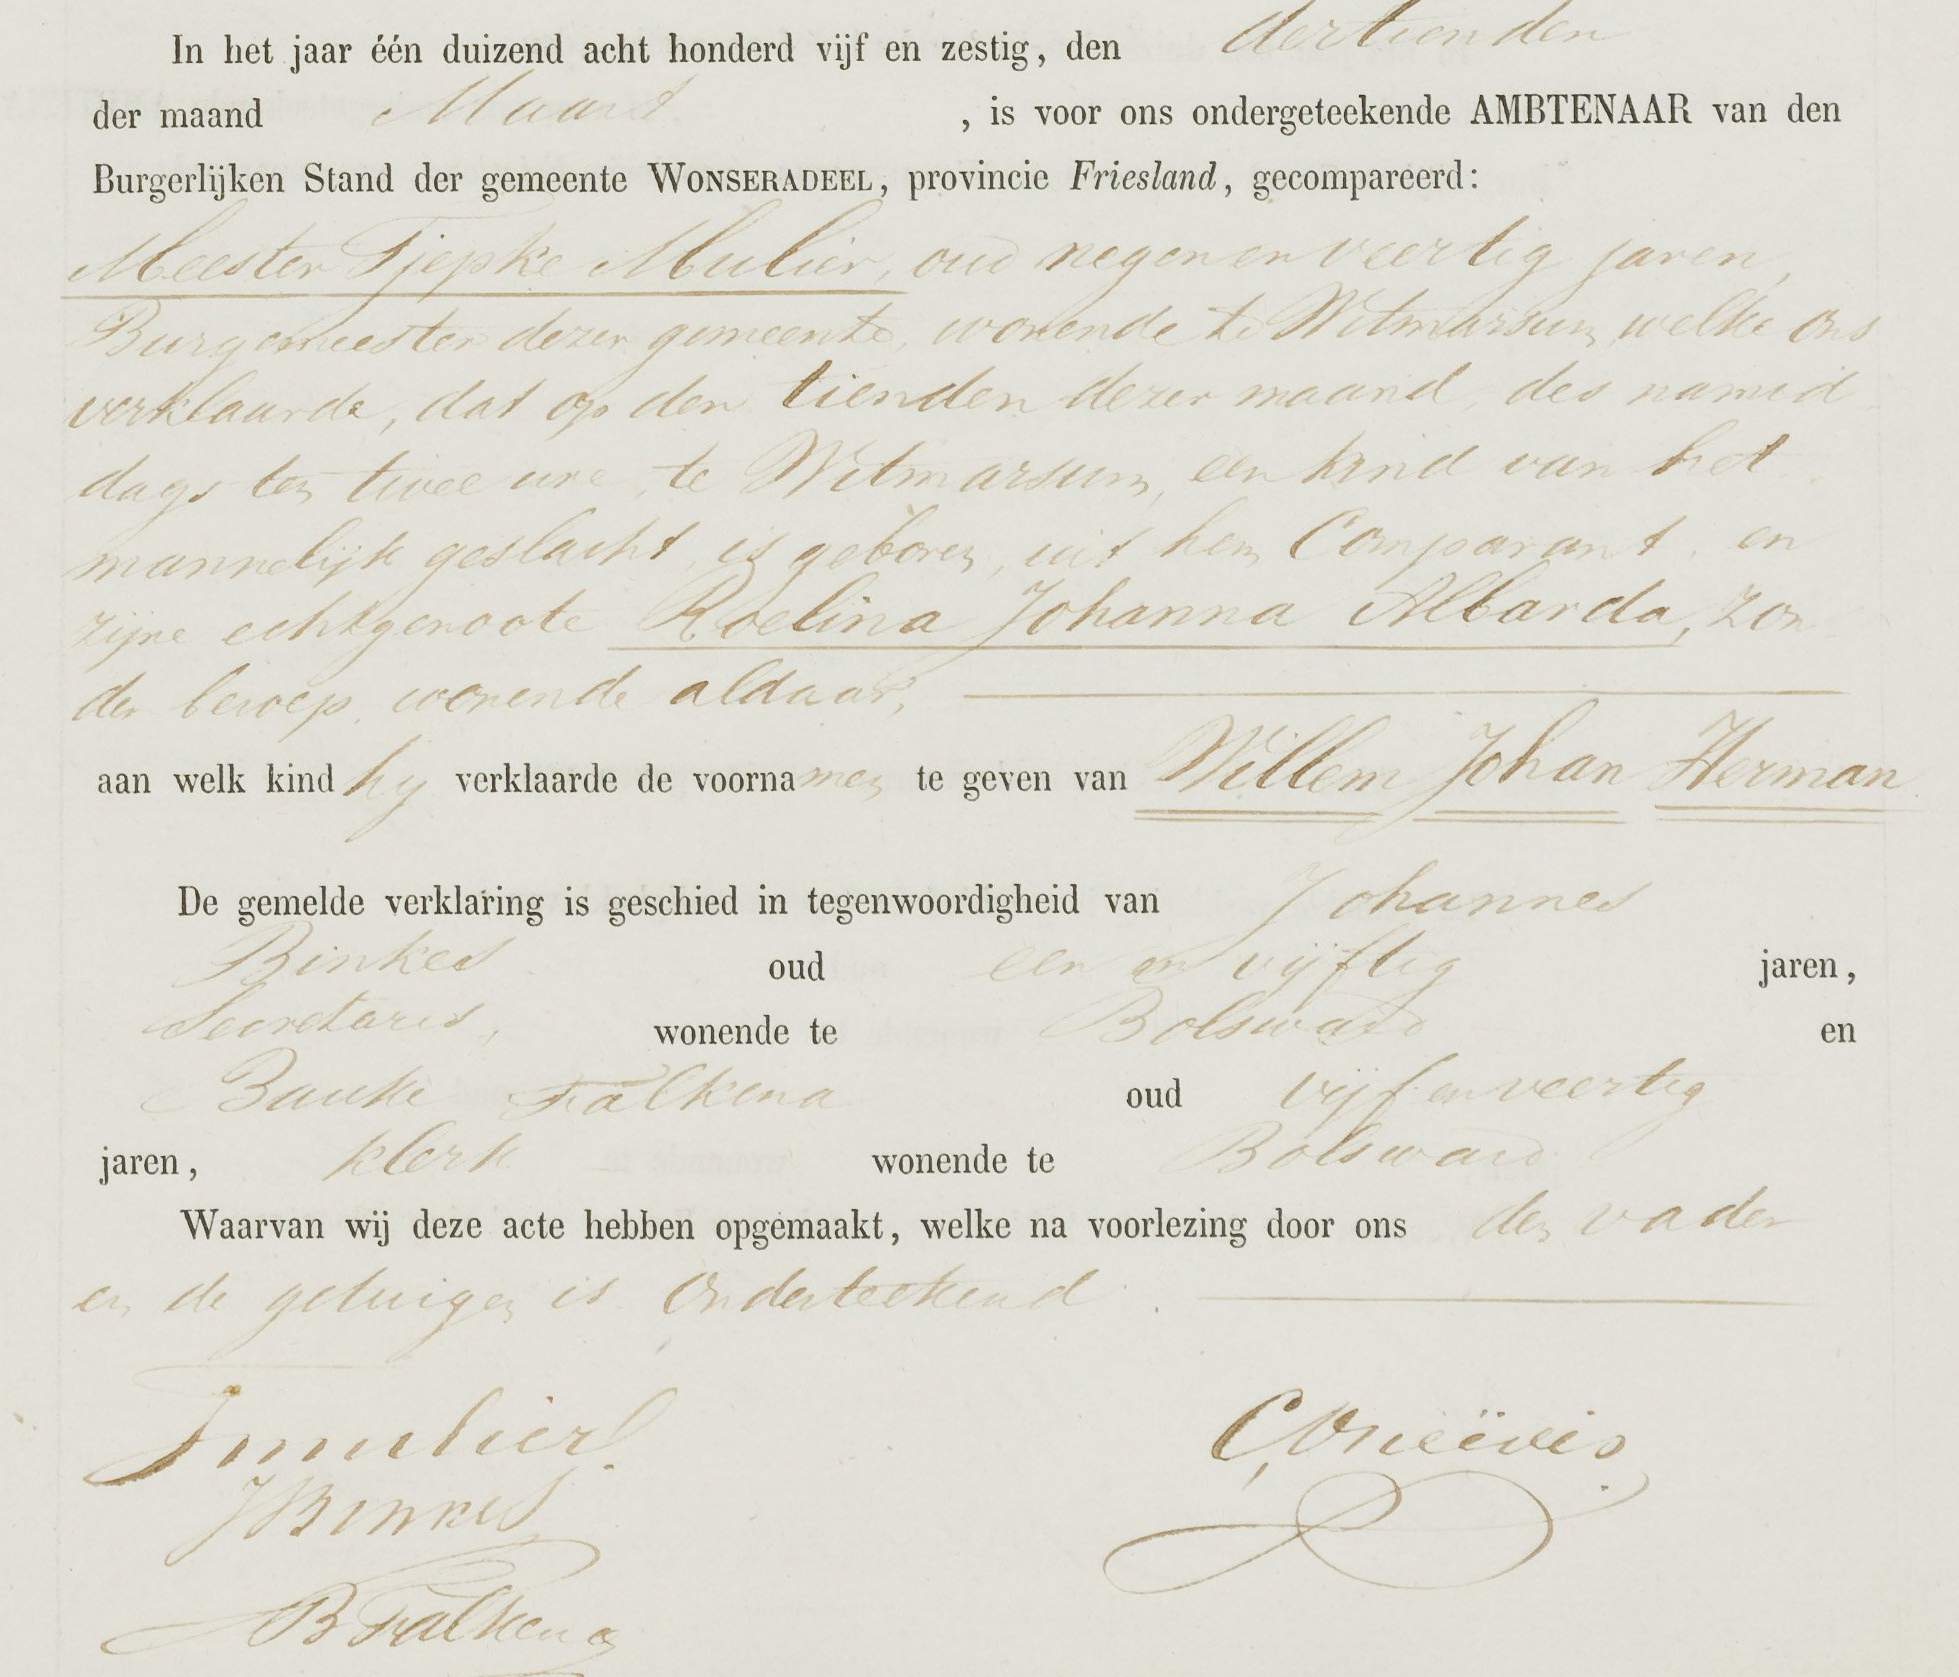 In het jaar één duizend acht honderd vijf en zestig, den dertienden
der maand Maart , is voor ons ondergeteekende AMBTENAAR van den
Burgerlijken Stand der gemeente WONSERADEEL, provincie Friesland, gecompareerd:
Meester Tjepke Mulier, oud negen en veertig jaren,
Burgemeester dezer gemeente, wonende te Witmarsum, welke ons
verklaarde, dat op den tienden dezer maand, des namid
dags ten twee ure, te Witmarsum, een kind van het
mannelijk geslacht, is geboren, uit hem Comparant, en
zijne echtgenoote Roelina Johanna Albarda, zon
der beroep, wonende aldaar,
aan welk kind hij verklaarde de voornamen te geven van Willem Johan Herman
De gemelde verklaring is geschied in tegenwoordigheid van Johannes
Binkes oud een en vijftig jaren,
Secretaris, wonende te Bolsward en
Bauke Falkena oud vijf en veertig
jaren, klerk wonende te Bolsward
Waarvan wij deze acte hebben opgemaakt, welke na voorlezing door ons den vader
en de getuigen is onderteekend.
TMulier
JBinkes
BFalkena